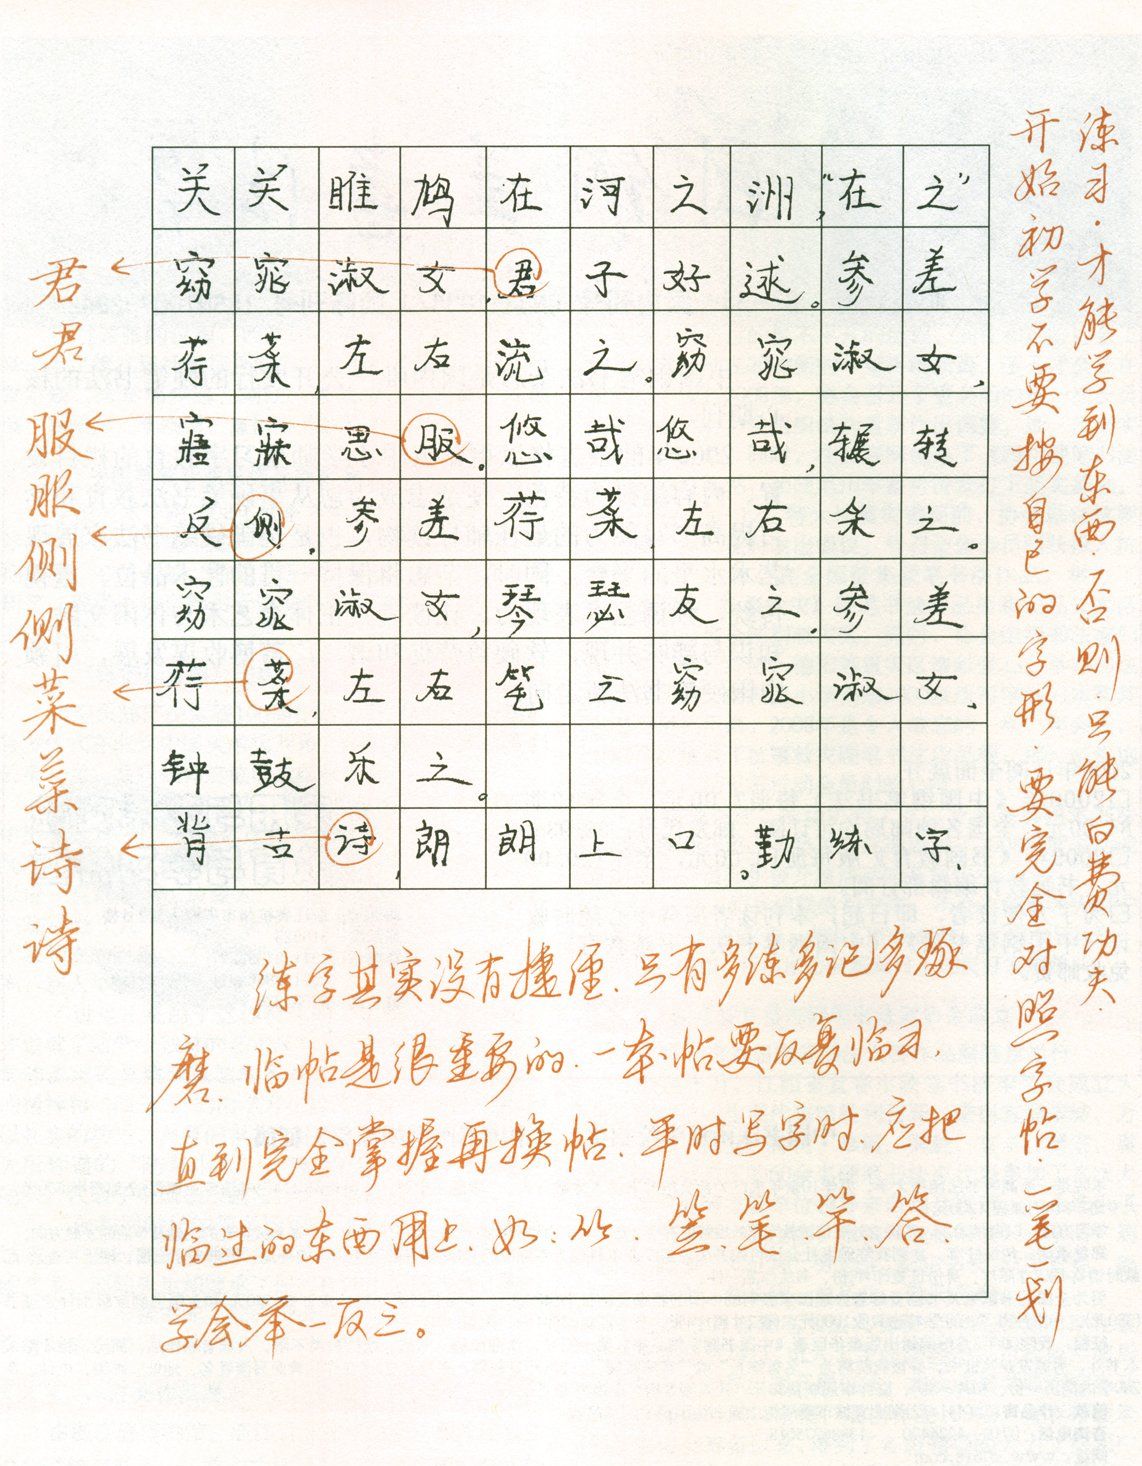 关关雎鸠在河之洲,“在之”
窈窕淑女,君子好逑。参差
荇菜,左右流之。窈窕淑女,
寤寐思服。悠哉悠哉,辗转
反侧。参差荇菜,左右采之。
窈窕淑女,琴瑟友之。参差
荇菜,左右芼之 窈窕淑女、
钟鼓乐之。
背古诗,朗朗上口。勤练字、
君
君
服
服
侧
侧
菜
菜
诗
诗
练字其实没有捷径、只有多练多记多琢
磨、临帖是很重要的、一本帖要反复临习,
直到完全掌握再换帖、平时写字时、应把
临过的东西用上、如:⺮、笠、笔、竿、答、
学会举一反三。
开始初学不要按自己的字形、要完全对照字帖、一笔一划
练习·才能学到东西·否则只能白费功夫·